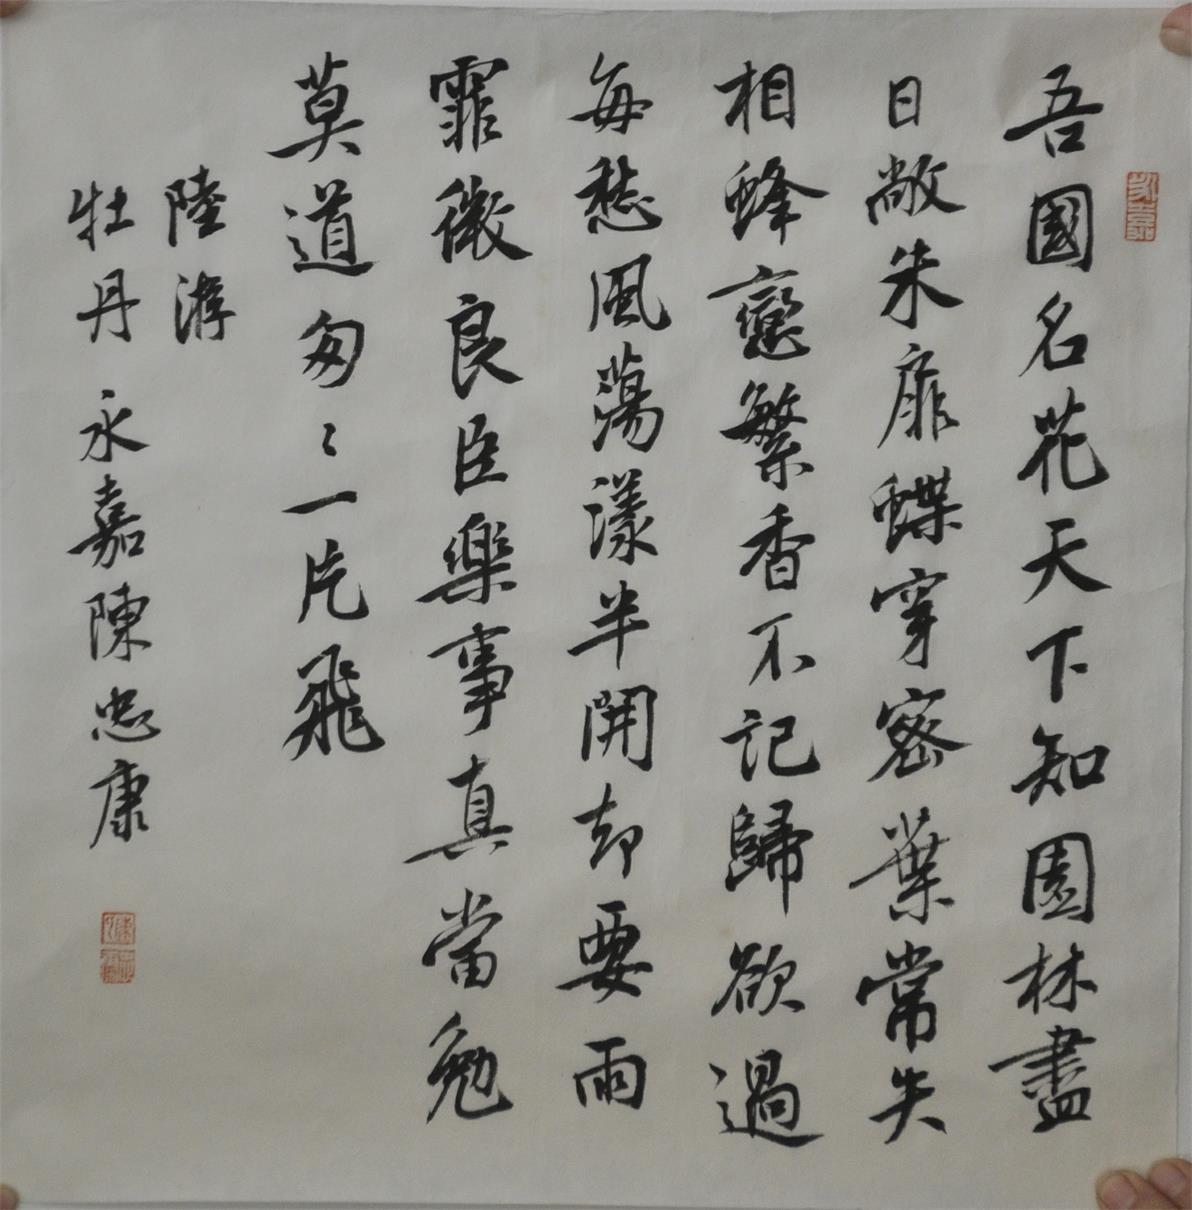 吾國名花天下知園林盡
日敞朱扉蝶穿密葉常失
相蜂戀繁香不記歸欲過
每愁風蕩漾半開却要雨
霏微良臣樂事真當勉
莫道匆〻一片飛
陸游
牡丹 永嘉陳忠康
永嘉